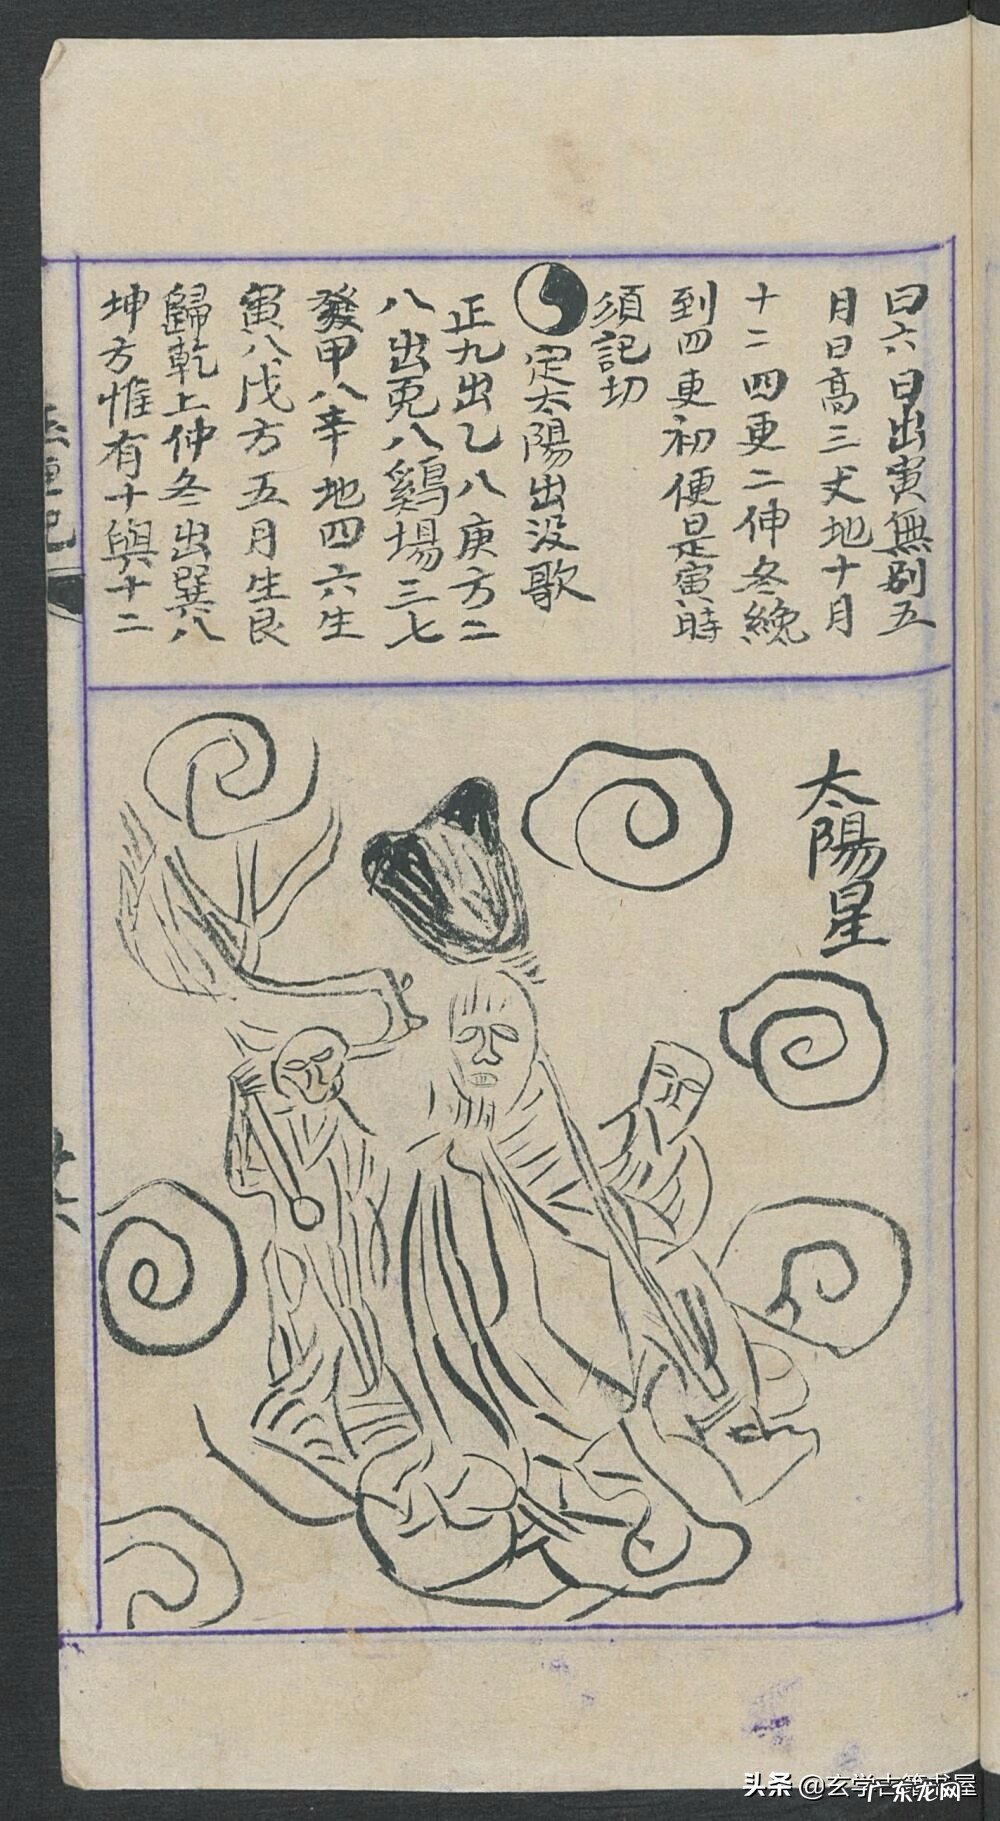 曰六日出寅無别五
月日高三丈地十月
十二四更二仲冬纔
到四更初便是寅時
須記切
定太陽出没歌
正九出乙入庚方二
八出兎入鷄場三七
發甲入辛地四六生
寅入戌方五月生艮
歸乾上仲冬出巽入
坤方惟有十與十二
太陽星
头条 @玄学古籍书屋
广东龙网